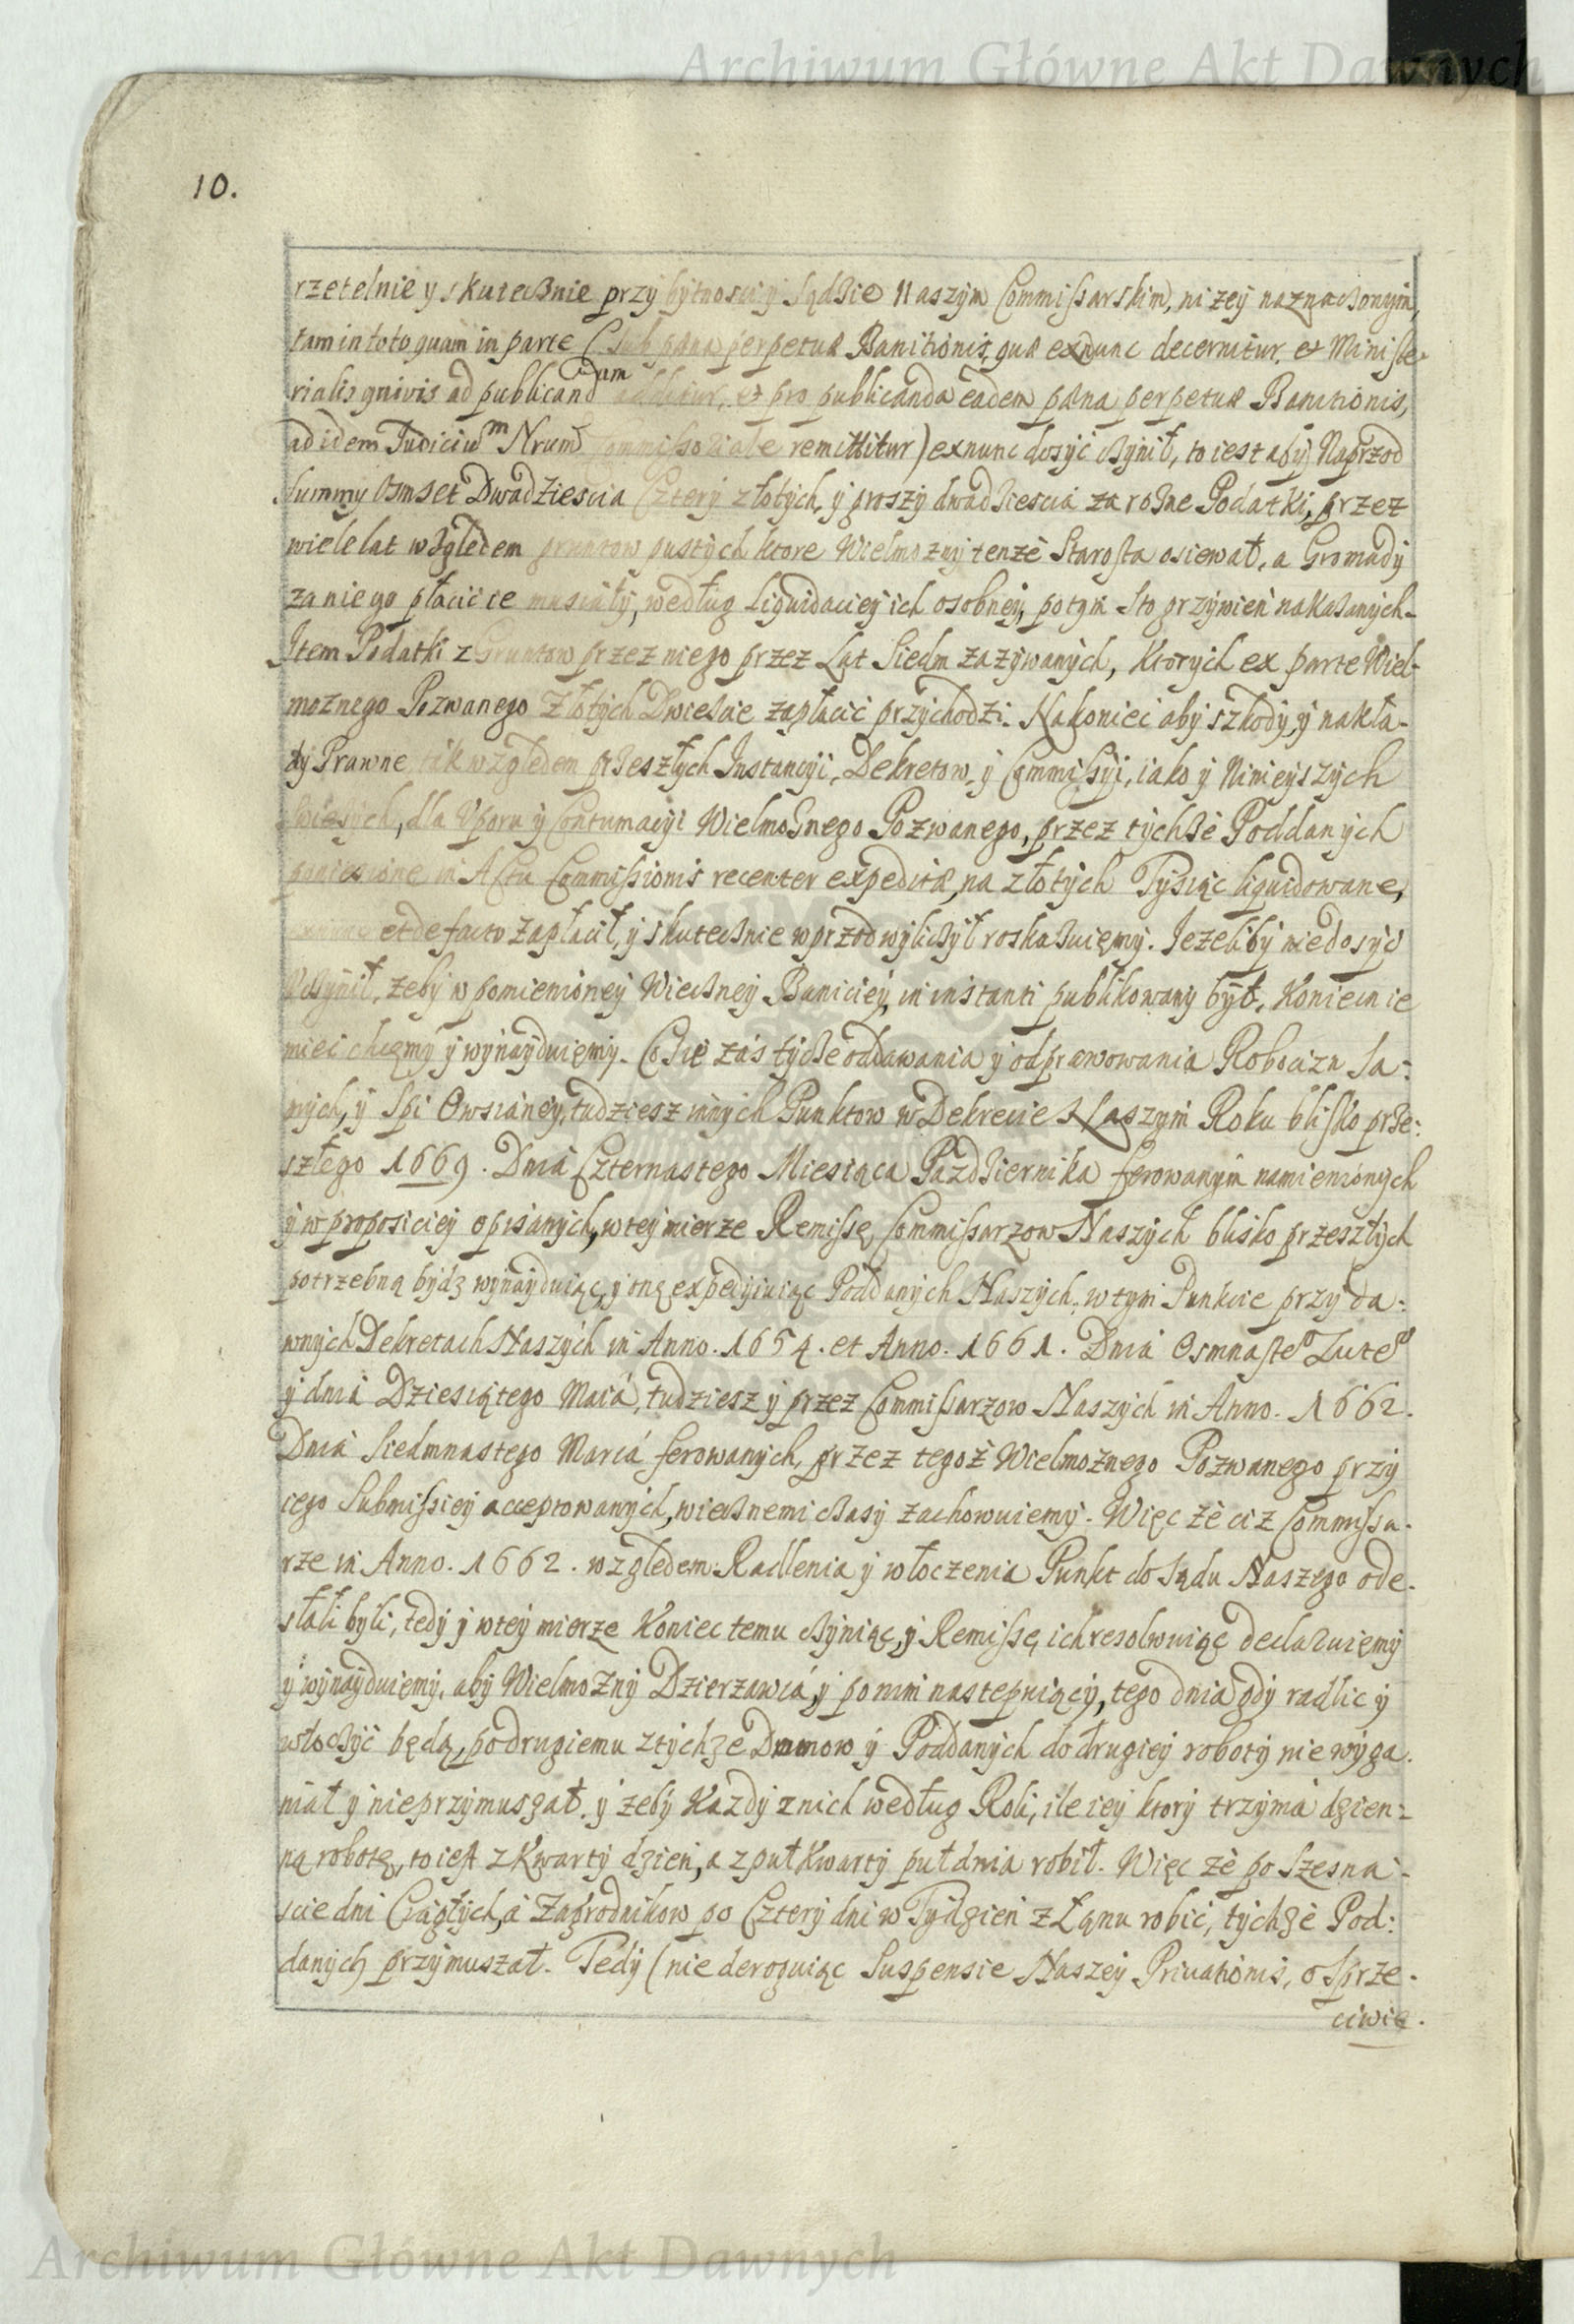 Archiwum Główne Akt Dawnych
10.
rzetelnie y skutecznie przy bytnosci y Sądzie Naszym Commissarskim, niżey naznaczonym,
tam in toto quam in parte (sub pæna perpetuæ Banitionis, quæ exnunc decernitur et Ministe-
rialis quivis ad publicandum additur, et pro publicanda eadem pæna perpetuæ Banitionis,
ad idem Judiciũ Nrum Commissoriale remittitur) exnunc dosyć czynił, to iest aby Naprzod
Summy Osmset Dwadziescia Cztery złotych, y groszy dwadziescia za rożne Podatki, przez
wiele lat względem gruntow pustych ktore Wielmożny tenże Starosta osiewał, a Gromady
za niego płacić ie musiały, według Liquidaciey ich osobney, potym Sto grzywień nakazanych.
Item Podatki z Gruntow przez niego przez Lat Siedm zażywanych, Ktorych ex parte Wiel-
możnego Pozwanego Złotych Dwiescie zapłacić przychodzi. Nakoniec aby szkody, y nakła-
dy Prawne tak względem przeszłych Instancyi, Dekretow, y Commissyi, iako y Ninieyszych
swiezych, dla Uporu y Contumacyi Wielmożnego Pozwanego, przez tychże Poddanych
poniesione in Actu Commissionis recenter expeditæ, na złotych Tysiąc liquidowane,
exnunc et de facto zapłacił, y skutecznie wprzod wyliczył roskazuięmy. Jezeliby niedosyć
Uczynił, żeby w pomienioney Wieczney Baniciey, in instanti publikowany był, Koniecnie
mieć chcęmy y wynayduięmy. Co Się zaś tycze oddawania y odprawowania Robocizn Sa-
mych, y Spi Owsianey, tudziesz innych Punktow w Dekrecie Naszym Roku blisko prze-
szłego 1669. Dnia Czternastego Miesiąca Pazdziernika ferowanym namienionych
y w proposiciey opisanych, w tey mierze Remissę Commissarzow Naszych blisko przeszłych
potrzebną bydz wynayduiąc, y onę expedyiuiąc Poddanych Naszych, w tym Punkcie przy da-
wnych Dekretach Naszych in Anno. 1654. et Anno. 1661. Dnia Osmnasteº Luteº
y dnia Dziesiątego Maia, tudziesz y przez Commissarzow Naszych in Anno. 1662.
Dnia Siedmnastego Marca ferowanych, przez tegoż Wielmożnego Pozwanego przy
iego Submissiey acceptowanych, wiecznemi czasy zachowuiemy. Więc że ciż Commissa-
rze in Anno. 1662. względem Radlenia y włoczenia Punkt do Sądu Naszego ode-
słali byli, tedy y w tey mierze Koniec temu czyniąc, y Remissę ich resolwuiąc declaruięmy
y wynayduiemy, aby Wielmożny Dzierzawca, y po nim następuiący, tego dnia gdy radlic y
włoczyć będą, po drugiemu z tychże Dmow y Poddanych do drugiey roboty nie wyga-
niał y nieprzymuszał, y żeby Każdy z nich według Roli, ile iey ktory trzyma dzien-
ną robotę, to iest z Kwarty dzień, a z puł Kwarty puł dnia robił. Więc że po Szesna-
scie dni Ciągłych, a Zagrodnikow po Cztery dni w Tydzień z Łanu robić, tychże Pod-
danych przymuszał. Tedy (nie deroguiąc Suspensie Naszey Privationis, o Sprze-
ciwie.
Archiwum Główne Akt Dawnych